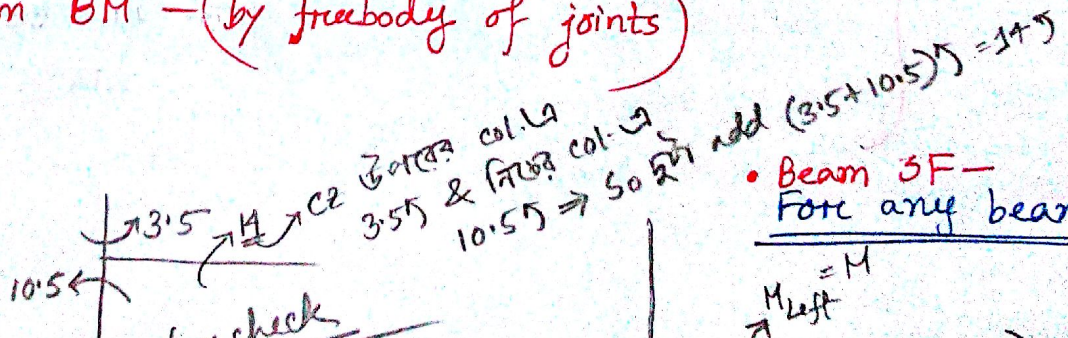 m BM - (by freebody of joints)
↗3.5 ↗14 ↗ cz উপরের col. এ
3.5↰ & নিচের col. এ
10.5↰ ⇒ So দুটো add (3.5+10.5)↰ = 14↰
10.5←
check
• Beam SF-
Fore any bear
= M
M Left